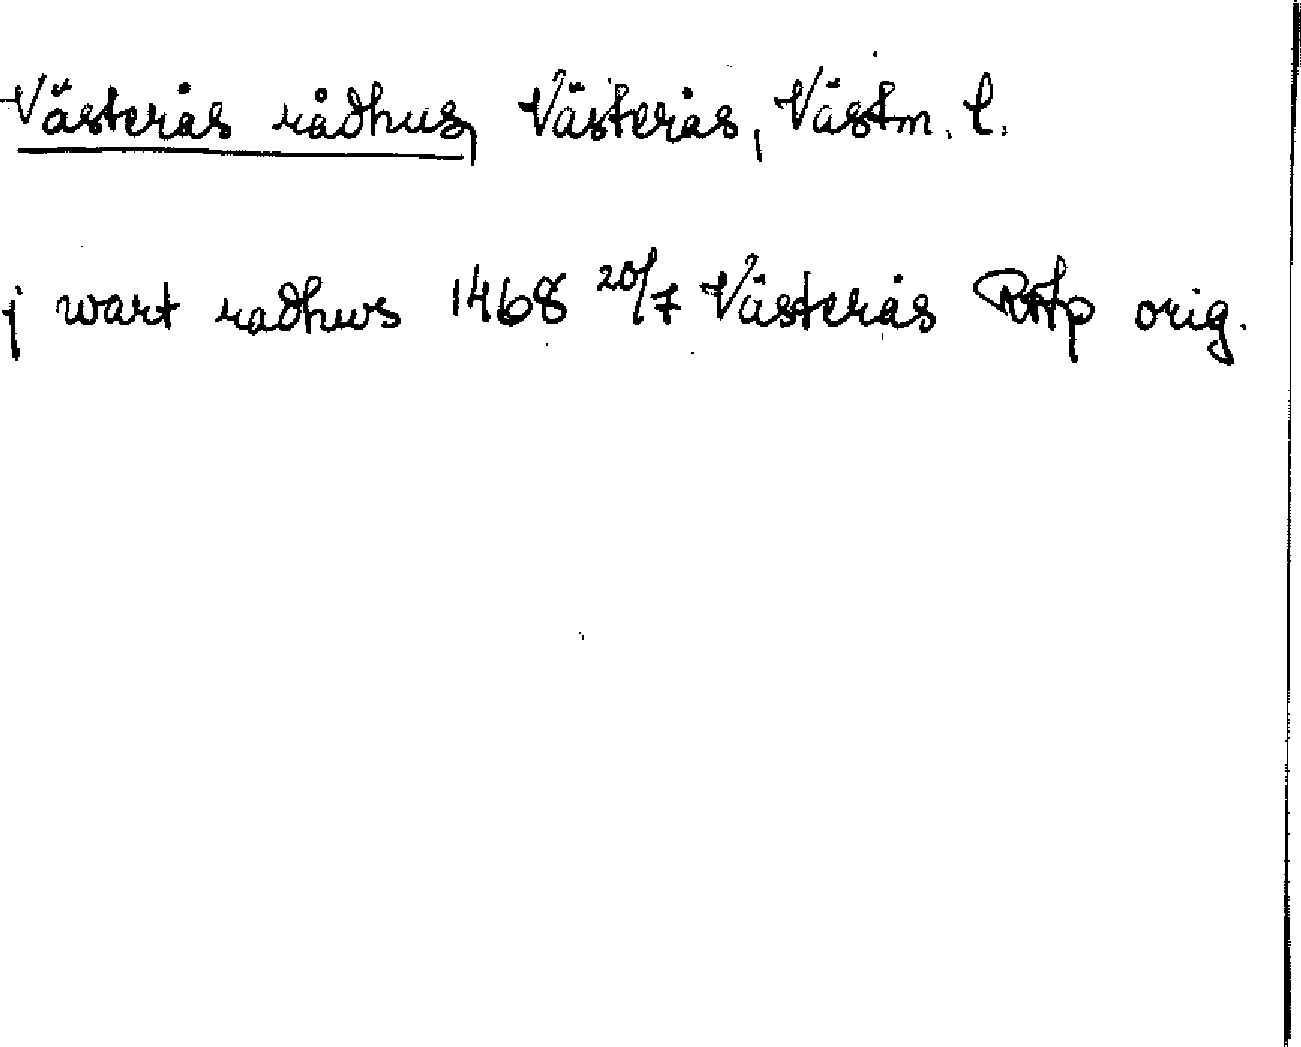 Västerås rådhus, Västerås, Västm. l.
j wart radhws 1468 20/7 Västerås RAp orig.